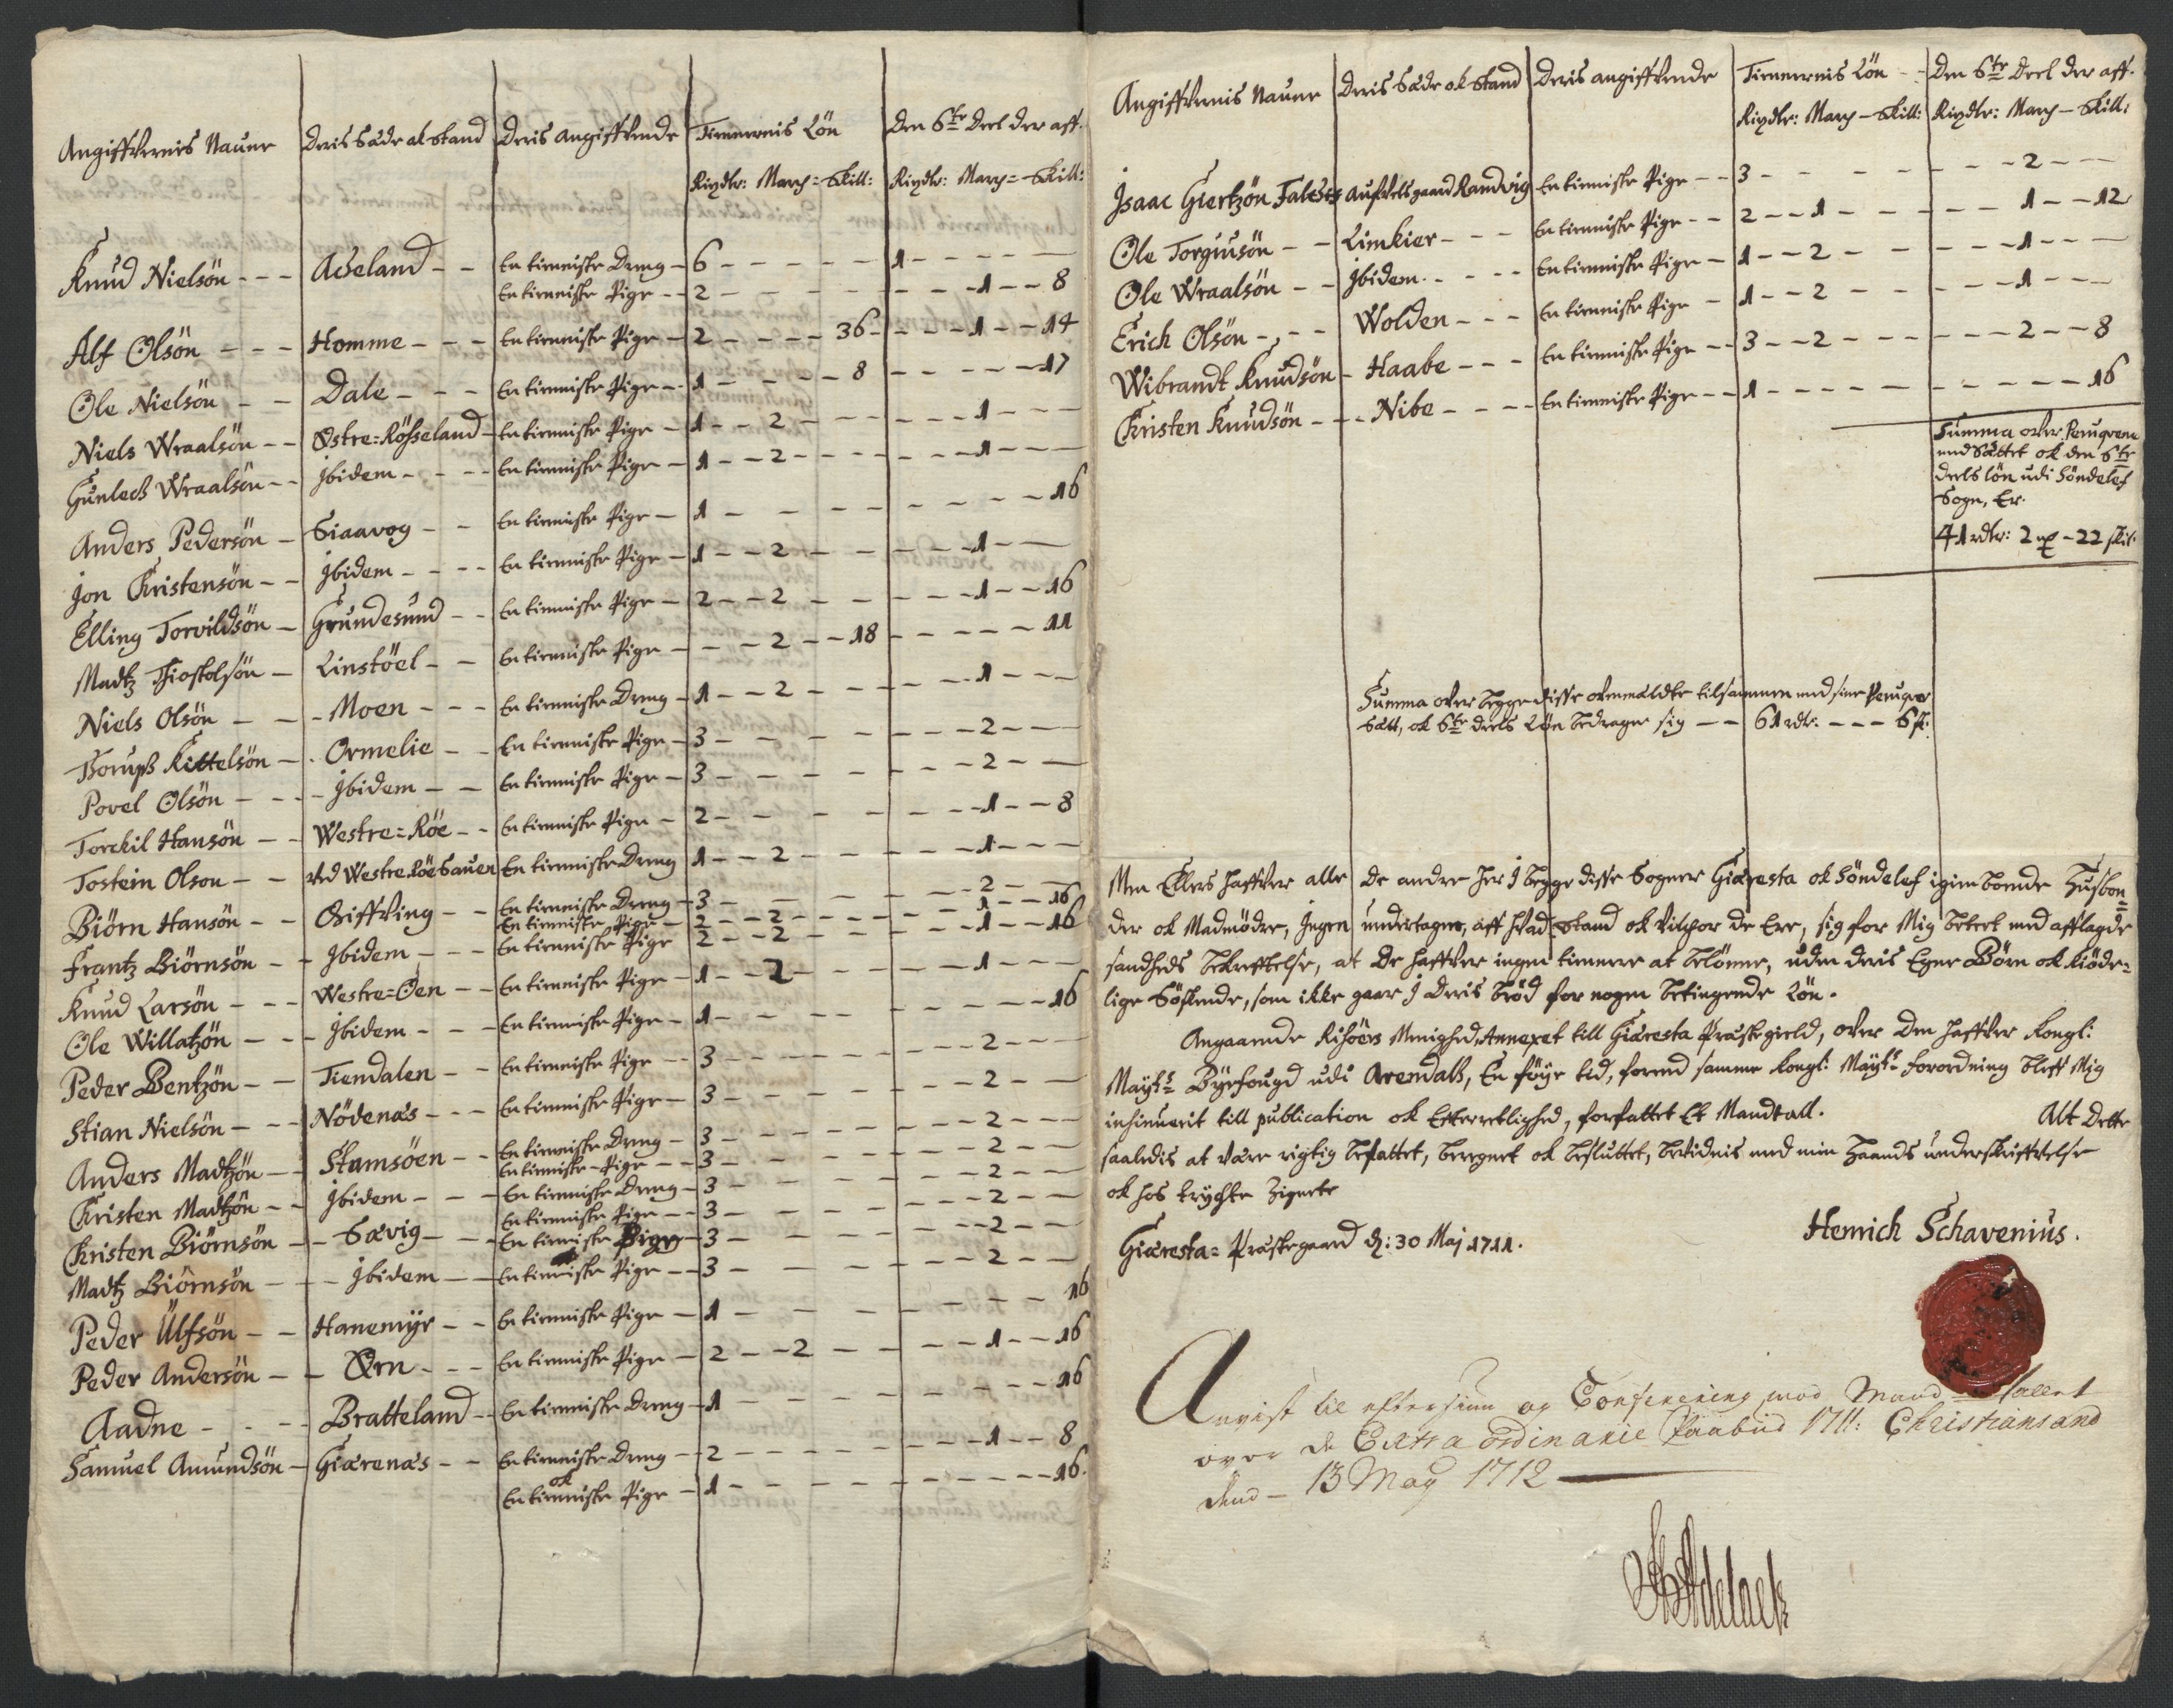 Angiffvernis Naune Deris Sæde ok Stand Deris angiffvende Tienernis Lön Den 6te Deel der aff.
Rixdlr: March = Skill: Rixdlr: March = Skill:
Knud Nielsön - - - Aaseland - - En tienniste Dreng - 6 - - - - - 1 - - - - -
En tienniste Pige - - 2 - - - - - - - - 1 - - 8
Alf Olsön - - - Homme - - - En tienniste Pige - 2 - - - - 36 - - - - 1 - - 14
Ole Nielsön - - Dale - - - En tienniste Pige - - 1 - - - - 8 - - - - - 17
Niels Wraalsön - - Østre = Rösseland - En tienniste Pige - 1 - - 2 - - - - - 1 - - -
Gunlech Wraalsön - - Jbidem - - - - En tienniste Pige - 1 - - 2 - - - - - - 1 - - -
Anders Pedersön - Siaavog - - En tienniste Pige - 1 - - - - - - - - 16
Jon Christensön - - Jbidem - - - - En tienniste Pige - 1 - - 2 - - - - - 1 - -
Elling Torvildsön - Grundesund - - En tienniste Pige - 2 - - 2 - - - - - 1 - - 16
Madtz Thiostolsön - Linstöel - - En tienniste Pige - - - 2 - - 18 - - - - - 11
Niels Olsön - - - Moen - - - En tienniste Dreng - 1 - - 2 - - - - 1 - - -
Ormelie - - En tienniste Pige - 3 - - - - - - - 2 - - -
Povel Olsön - - - Jbidem - - En tienniste Pige - 3 - - - - - - - 2 - - -
Torchil Hansön - - Westre = Röe - - En tienniste Pige - 2 - - - - - - - 1 - - 8
Tostein Olson - - ved Westre Röe Sauen En tienniste Dreng 1 - - 2 - - - - - 1 - - -
Biörn Hansön - - En tienniste Dreng - 3 - - - - - 2 - -
En tienniste Pige - 2 - - 2 - - - - - 1 - - 16
Frantz Biörnsön - - Jbidem - - - En tienniste Pige 2 - - 2 - - - - - 1 - - 16
Knud Larsön - - - Westre = Öen - - En tienniste Pige - 1 - - 2 - - - - - 1 - - -
Ole Willatzön - - Jbidem - - - En tienniste Pige - 1 - - - - - - - - 16
Peder Bentzön - - Tiendalen - - En tienniste Pige - - 3 - - - - - - - 2 - - -
Stian Nielsön - - - Nödenæs - - - En tienniste Pige - 3 - - - - - - - 2 - - -
Anders Madtzön - - Stamsöen - - En tienniste Dreng - 3 - - - - - - - 2 - - -
En tienniste Pige - - 3 - - - - - - 2 - - -
Christen Madtzön - - Jbidem - - - En tienniste Dreng - 3 - - - - - - 2 - - -
En tienniste Pige - - 3 - - - - - - 2 - - -
Christen Biörnsön - - Sævig - - - En tienniste Pige - 3 - - - - - - 2 - - -
Madtz Biörnsön - - - Jbidem - - En tienniste Pige - - 3 - - - - - - 2 - -
Peder Ulfsön - - Hanemÿr - - En tienniste Pige - 1 - - - - - - - 16
Peder Andersön - - Ørn - - - En tienniste Pige - 2 - - 2 - - - - 1 - - 16
Aadne - - - - Bratteland - - En tienniste Dreng - 1 - - - - - - - 16
Samuel Amundsön - Giærenæs - - En tienniste Dreng - 2 - - - - - - - 1 - - 8
ok
En tienniste Pige - 1 - - - - - - - - 16.
Angiffvernis Naune Deris Sæde ok Stand Deris angiffvende Tienernis Lön - - Den 6te Deel der aff.
Rixdlr: March - Skill: Rixdlr: March - Skill:
Isaac Giertzön Randvig En tienniste Pige - - 3 - - - - - - 2 - - -
Ole Torgiusön - - Limkier - - - En tienniste Pige - - 2 - - 1 - - - - - 1 - - 12
Ole Wraalsön - - Jbidem - - - - En tienniste Pige - 1 - - 2 - - - - - 1 - - -
Erich Olsön - - - Wolden - - - En tienniste Pige - 1 - - 2 - - - - - 1 - - -
Wibrandt Knudsön - Haabe - - - En tienniste Pige - - 3 - - 2 - - - - - 2 - - 8
Christen Knudsön - - - Nibe - - - - En tienniste Pige - - 1 - - - - - - - - - 16
Summa over Peruqvene
med Sættet ok den 6te
deels lön udi Söndelef
Sogn, Er.
41 rdlr: 2 mk - 22 skil.
Summa over begge disse ovenmældte tilsammen med sine Peruqver
Sætt, ok 6te deels Lön bedrager sig - - 61 rdr: - - - 6 sk:
Men Ellers haffver alle de andre her J begge disse Sogner Giæresta ok Söndelef igienboende Husbon=
der ok Madmödre, Ingen undertagne, aff hvad Stand ok Vilchor de Ere, sig for Mig beteet med afflagde
sandheds bekrefftelse, at De haffver ingen tienere at belönne, uden deris Egne Börn ok kiöde=
lige Söskende, som ikke gaar J deris bröd for nogen betingende Lön.
Angaaende Risöers Menighed, Annexet till Giæresta Præstegield, over den haffver Kongl:
Mayts Bÿefougd udi Arendall, En föÿe tid, forend samme Kongl: Mayts forordning bleff Mig
insinuerit till publication ok Efterretlighed, forfattet Et Mandtall. Alt Dette
saaledis at være rigtig befattet, beregnet ok besluttet, bevidnis med min Haands underskrifftelse
ok hos trÿchte Zignete
Giæresta = Præstegaard d: 30 Maj 1711. Henrich Schavenius.
Anvist til eftersiun og Conferering mod Mand = tallet
over de Extra ordinarie Paabud 1711: Christiansand
dend - 13 May 1712